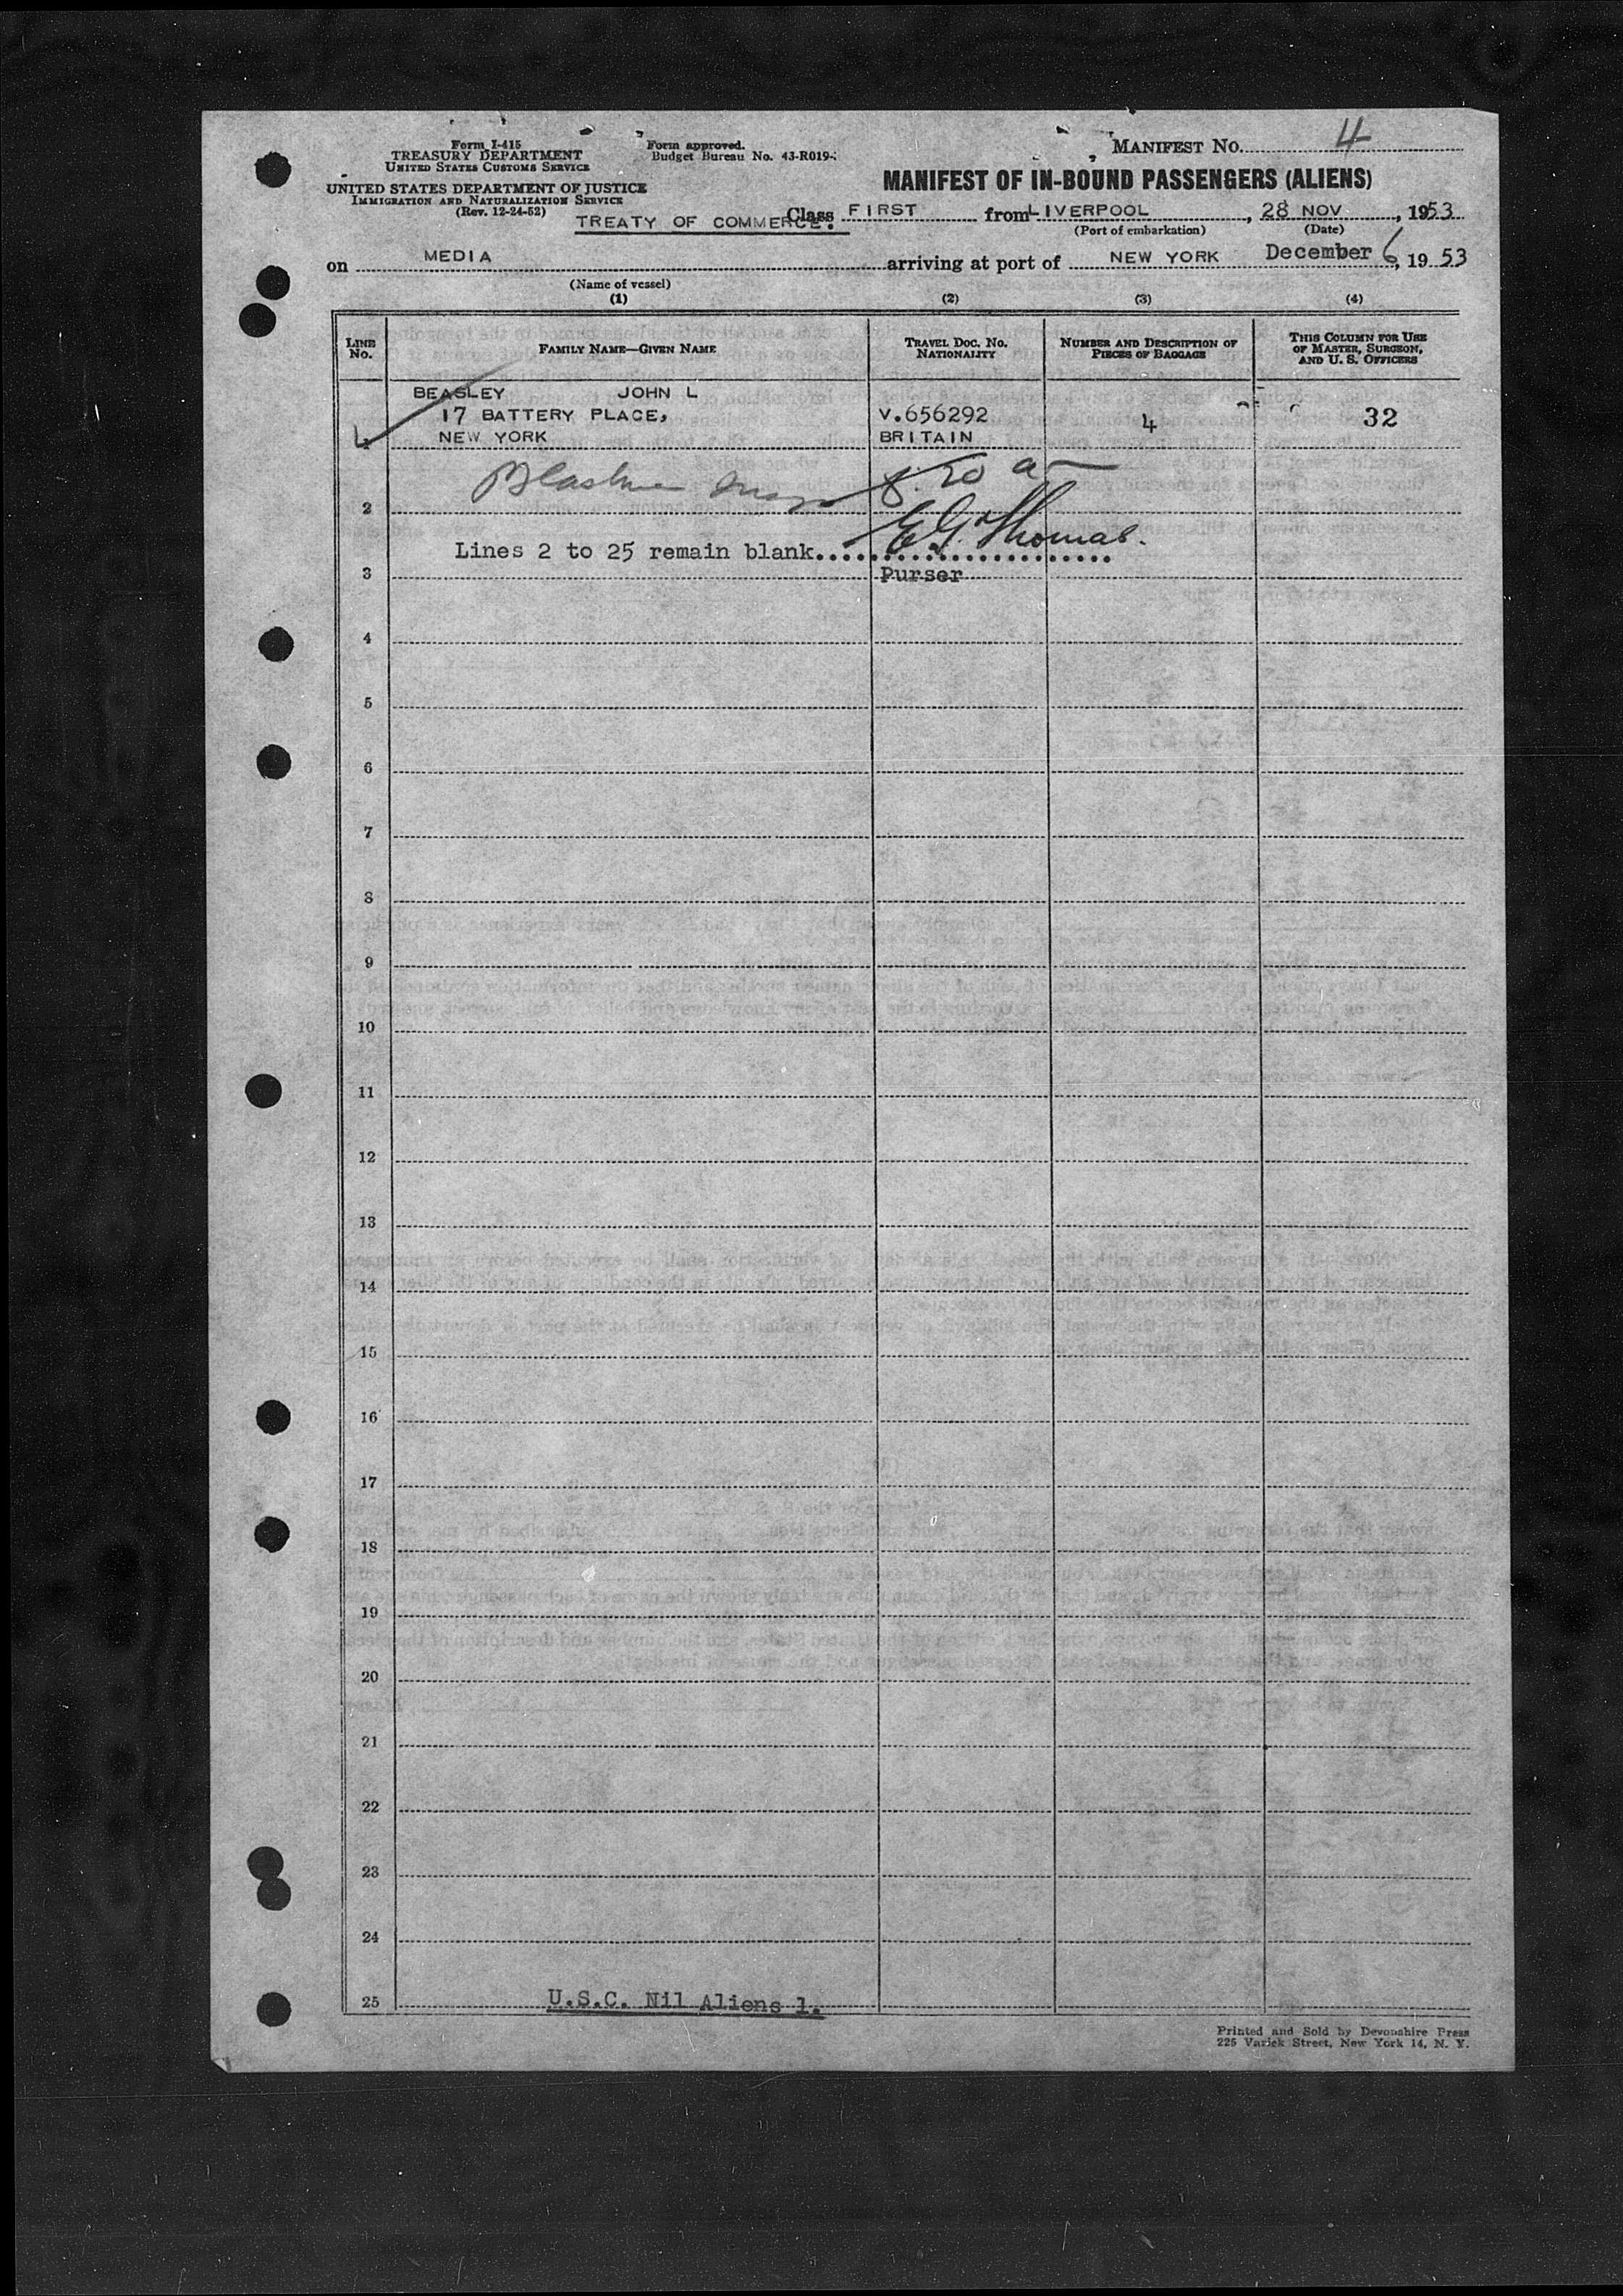 Form I-415
TREASURY DEPARTMENT
UNITED STATES CUSTOMS SERVICE
UNITED STATES DEPARTMENT OF JUSTICE
IMMIGRATION AND NATURALIZATION SERVICE
(Rev. 12-24-52)
Form approved.
Budget Bureau No. 43-R019-
MANIFEST No. 4
MANIFEST OF IN-BOUND PASSENGERS (ALIENS)
TREATY OF COMMERCE. Class FIRST from LIVERPOOL, 28 NOV, 1953
(Port of embarkation) (Date)
on MEDIA arriving at port of NEW YORK December 6, 1953
(Name of vessel)
(1) (2) (3) (4)
LINE No. FAMILY NAME—GIVEN NAME TRAVEL DOC. NO. NATIONALITY NUMBER AND DESCRIPTION OF PIECES OF BAGGAGE THIS COLUMN FOR USE OF MASTER, SURGEON, AND U. S. OFFICERS
BEASLEY JOHN L
17 BATTERY PLACE, V.656292 4 32
1 NEW YORK BRITAIN
2
E.G. Thomas.
Lines 2 to 25 remain blank....................
3 Purser
4
5
6
7
8
9
10
11
12
13
14
15
16
17
18
19
20
21
22
23
24
25 U.S.C. Nil Aliens 1.
Printed and Sold by Devonshire Press
225 Varick Street, New York 14, N. Y.